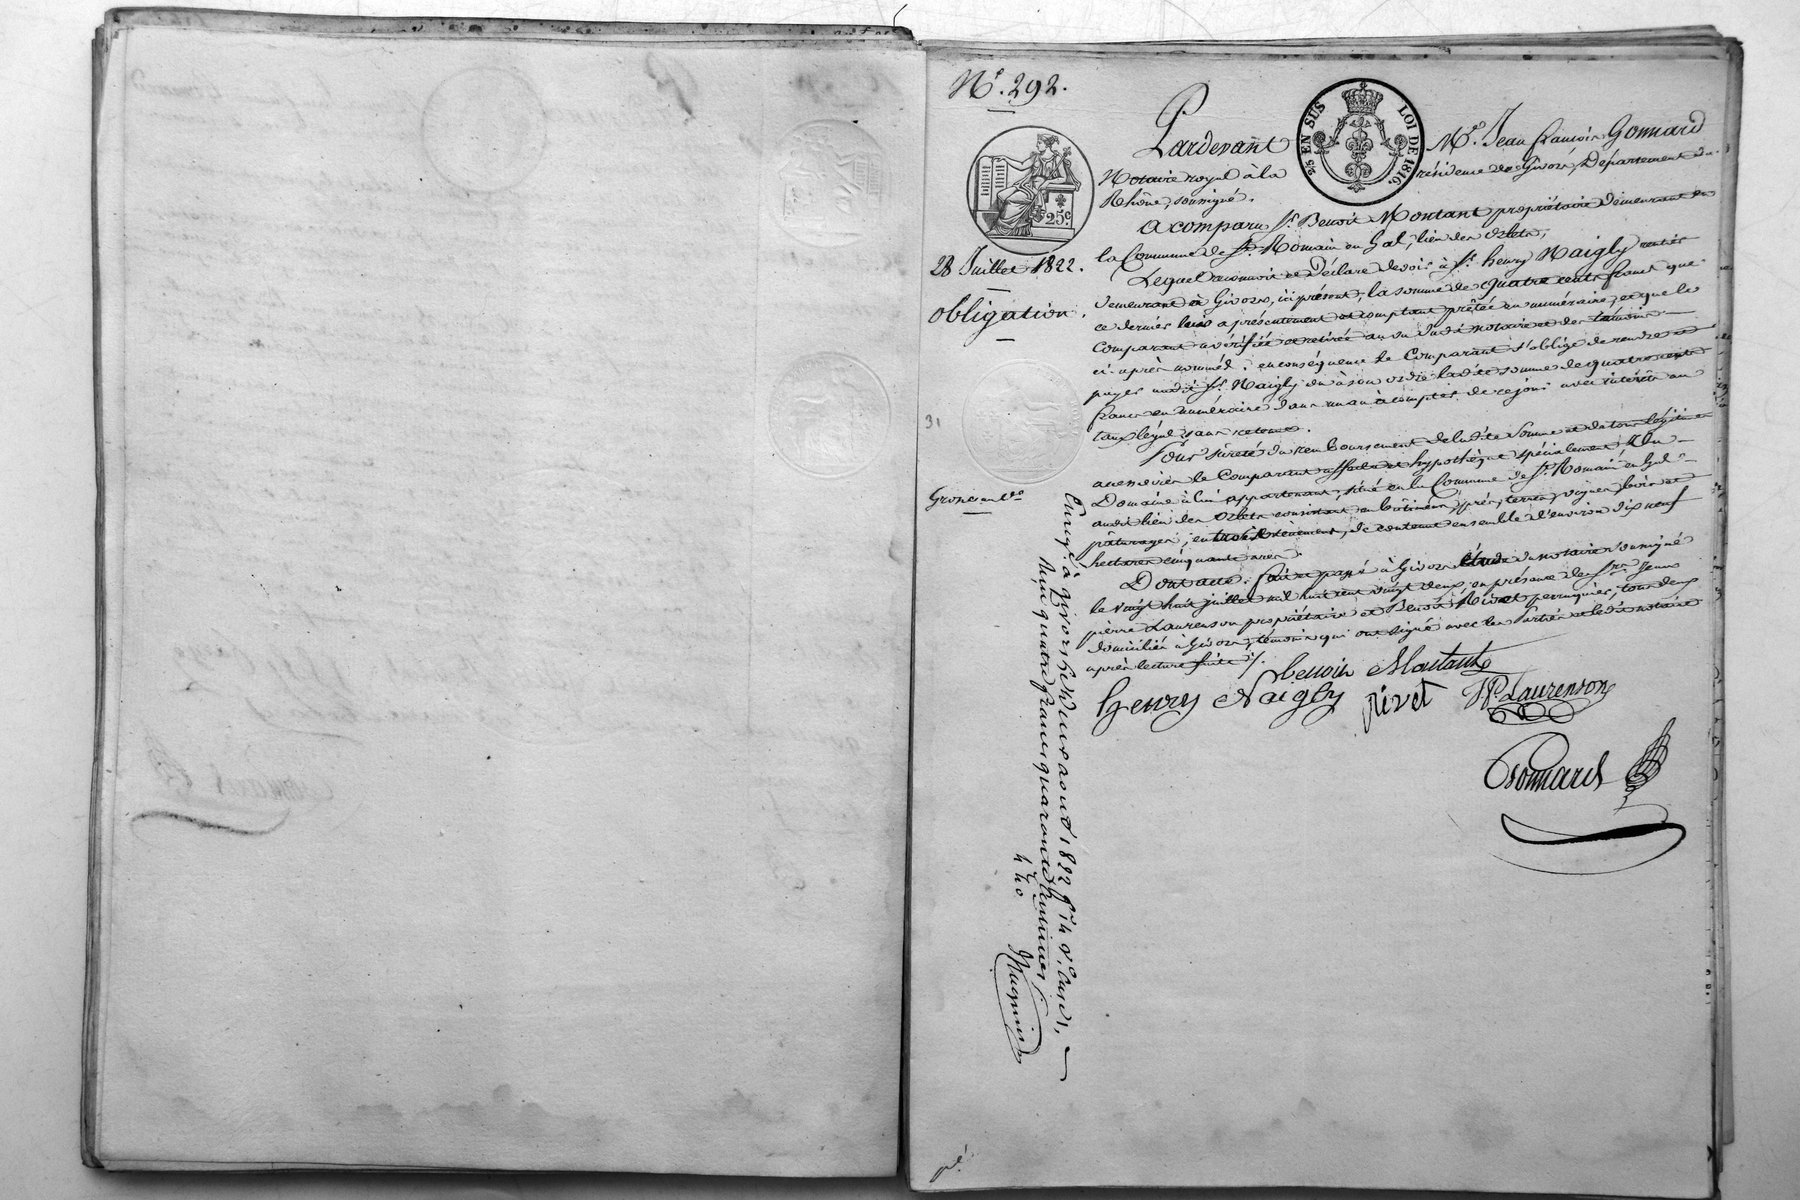 N.° 292.
25 EN SUS LOI DE 1816.
25c.
28 Juillet 1822.
Obligation.
31
Grosse en 1re
Pardevant M.e Jean françois Gonnard
Notaire royal à la résidence de Givors, Département du
Rhône, soussigné,
A comparu S.r Benoit Montant propriétaire demeurant en
la Commune de S.t Romain en Gal, lieu des
Lequel reconnoit et Déclare devoir à S.r henry Naigly rentier
demeurant à Givors, ici présent, la somme de quatre cents francs que
ce dernier lui a présentement et comptant prêtée en numéraire, et que le
comparant a vérifiée et retirée au vu dudit notaire et des témoins
ci-après nommés; en conséquence le Comparant s'oblige de rendre et
payer audit S.r Naigly ou à son ordre ladite somme de quatre cents
francs en numéraire dans un an à compter de ce jour avec intérêts au
taux légal sans retenue.
Pour sûreté du remboursement de ladite Somme et de tous légitimes
accessoires le Comparant affecte et hypothèque spécialement Un
Domaine à lui appartenant, situé en la Commune de S.t Romain en Gal
audit lieu des consistant en bâtimens, prés, terres, vignes, bois et
pâturages, en tènement, de contenue ensemble d'environ dix neuf
hectares cinquante ares.
Dont acte: fait et passé à Givors étude du notaire soussigné
le vingt huit juillet mil huit cent vingt deux, en présence de S.rs Jean
pierre Laurenson propriétaire et Benoit Rivet perruquier, tous deux
domiciliés à Givors, témoins qui ont signé avec les Parties et ledit notaire
après lecture faite ./.
benoit Montant
henry Naigly Rivet JP Laurenson
Gonnard
Enreg.é à givors le deux aout 1822 f.o 14 v.o Case 1,
reçu quatre francs quarante centimes ./.
4 40